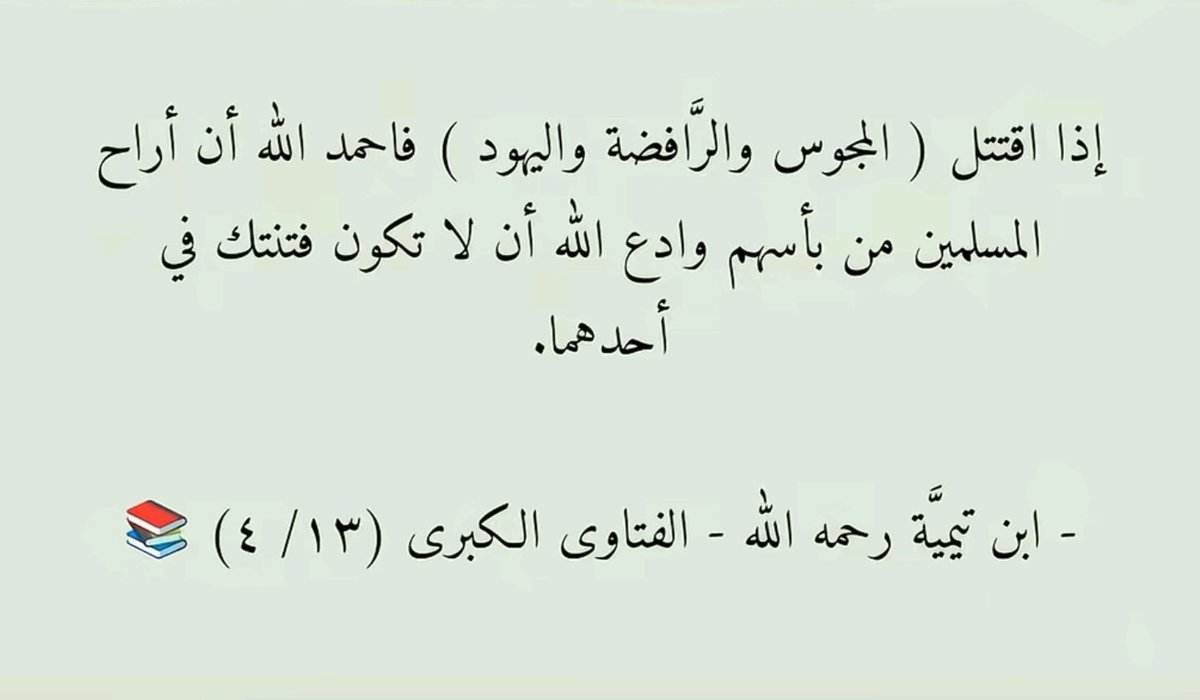 إذا اقتتل ( المجوس والرَّافضة واليهود ) فاحمد الله أن أراح
المسلمين من بأسهم وادع الله أن لا تكون فتنتك في
أحدهما.
- ابن تيميَّة رحمه الله - الفتاوى الكبرى (١٣/ ٤) 📚